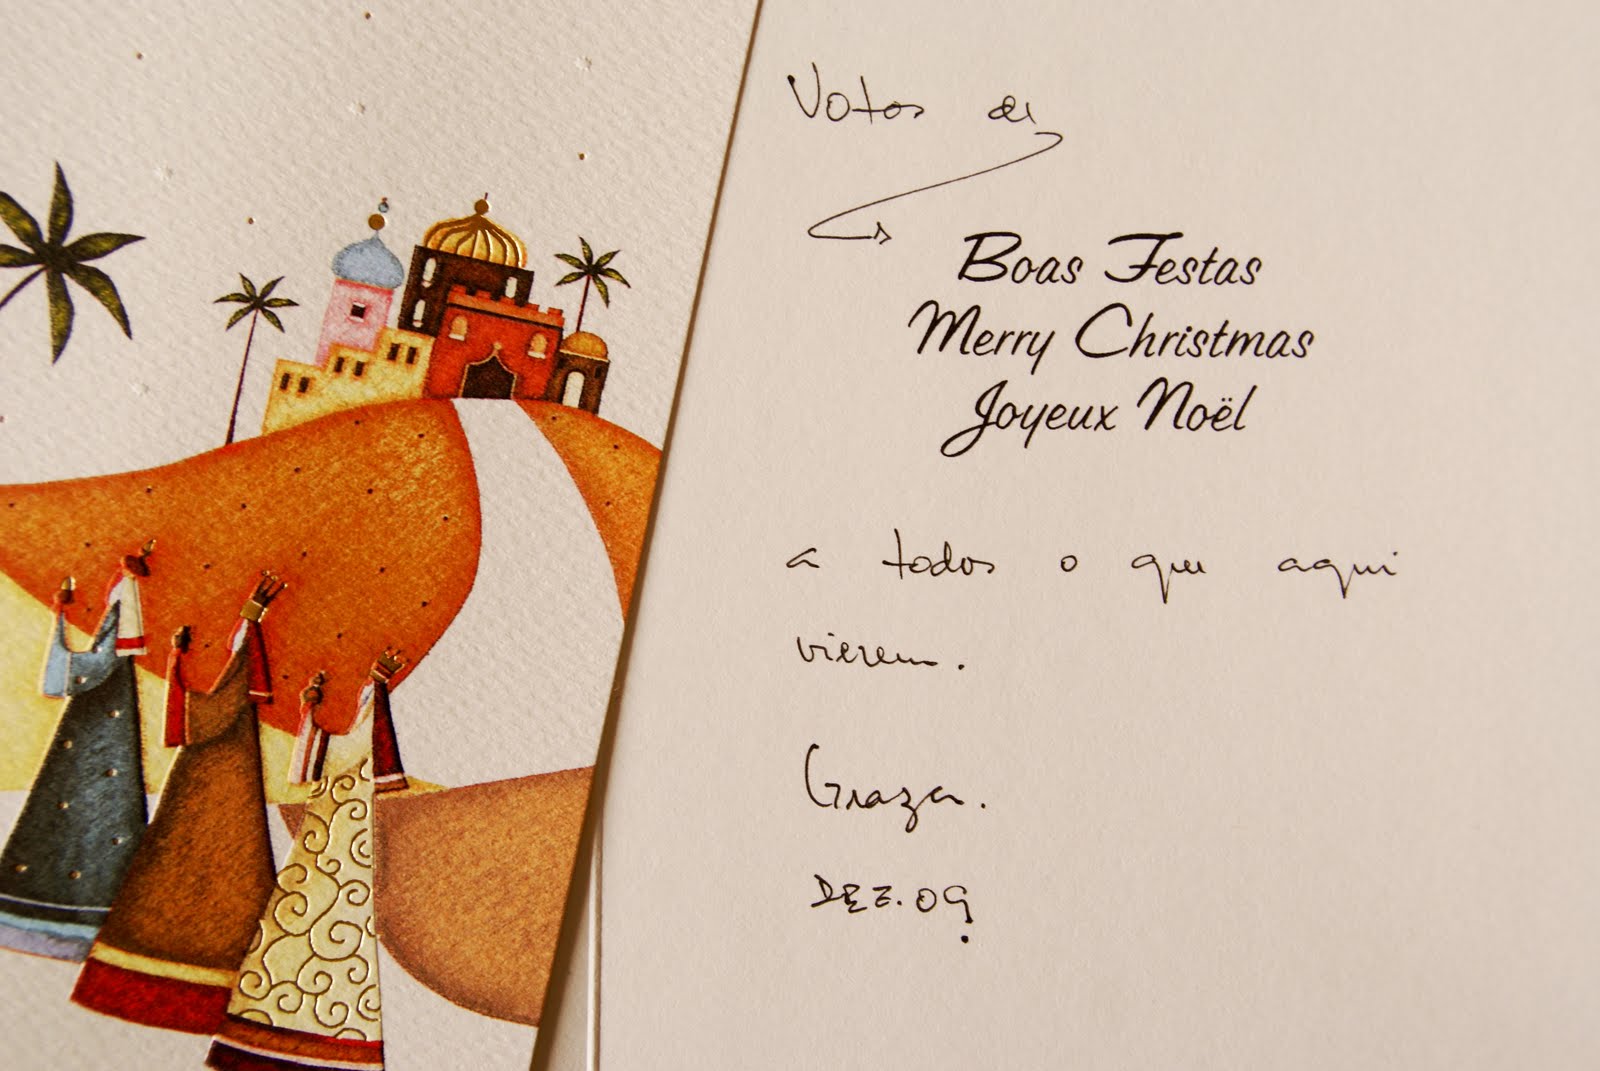 Votos de
Boas Festas
Merry Christmas
Joyeux Noël
a todos o que aqui
vierem.
Graza.
DEZ.09